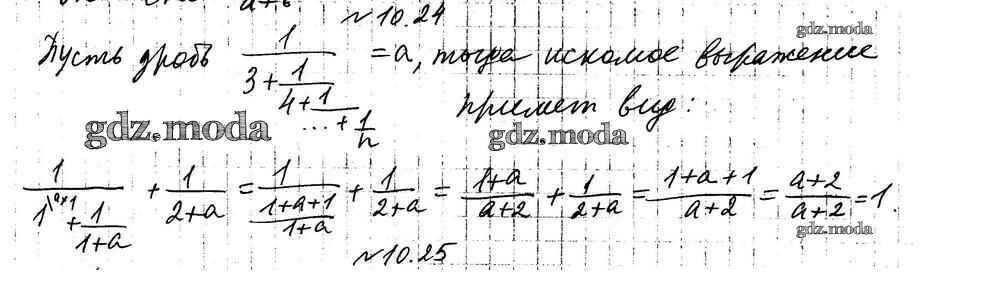 №10.24
Пусть дробь 1/(3+1/(4+1/(...+1/n))) = a, тогда искомое выражение
примет вид:
gdz.moda
gdz.moda
gdz.moda
1/(1^(a+1) + 1/(1+a)) + 1/(2+a) = 1/((1+a+1)/(1+a)) + 1/(2+a) = (1+a)/(a+2) + 1/(2+a) = (1+a+1)/(a+2) = (a+2)/(a+2) = 1.
gdz.moda
№10.25